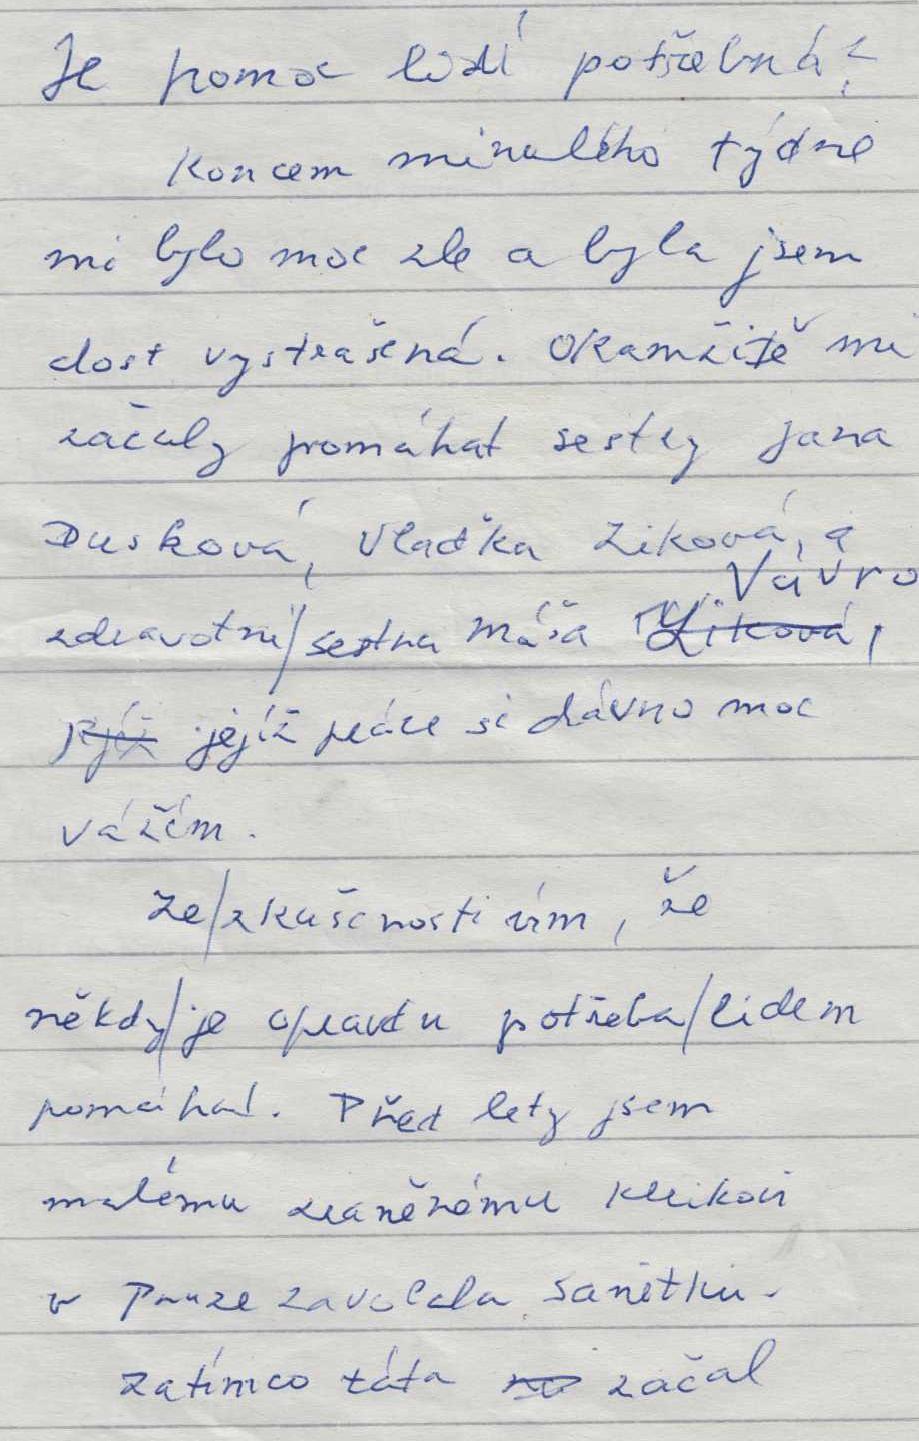 Je pomoc lidí potřebná?
Koncem minulého týdne
mi bylo moc zle a byla jsem
dost vystrašená. Okamžitě mi
začaly pomáhat sestry Jana
Dusková, Vlaďka Ziková, a
Vávro
zdravotní/sestna Máša Ziková,
jejíž jejíž práce si dávno moc
vážím.
Ze/zkušenosti vím, že
někdy/je opravdu potřeba/lidem
pomáhat. Před lety jsem
malému zraněnému klukovi
v Praze zavolala sanitku.
Zatímco táta začal